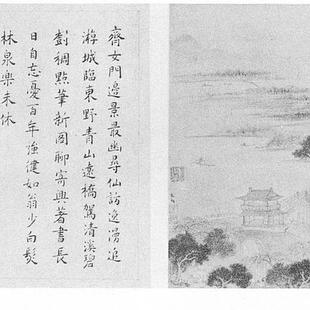 齊女門邊景最幽尋仙訪逸漫追
游城臨東野青山遠橋駕清溪碧
樹稠點筆新圖聊寄興著書長
日自忘憂百年強健如翁少白髮
林泉樂未休